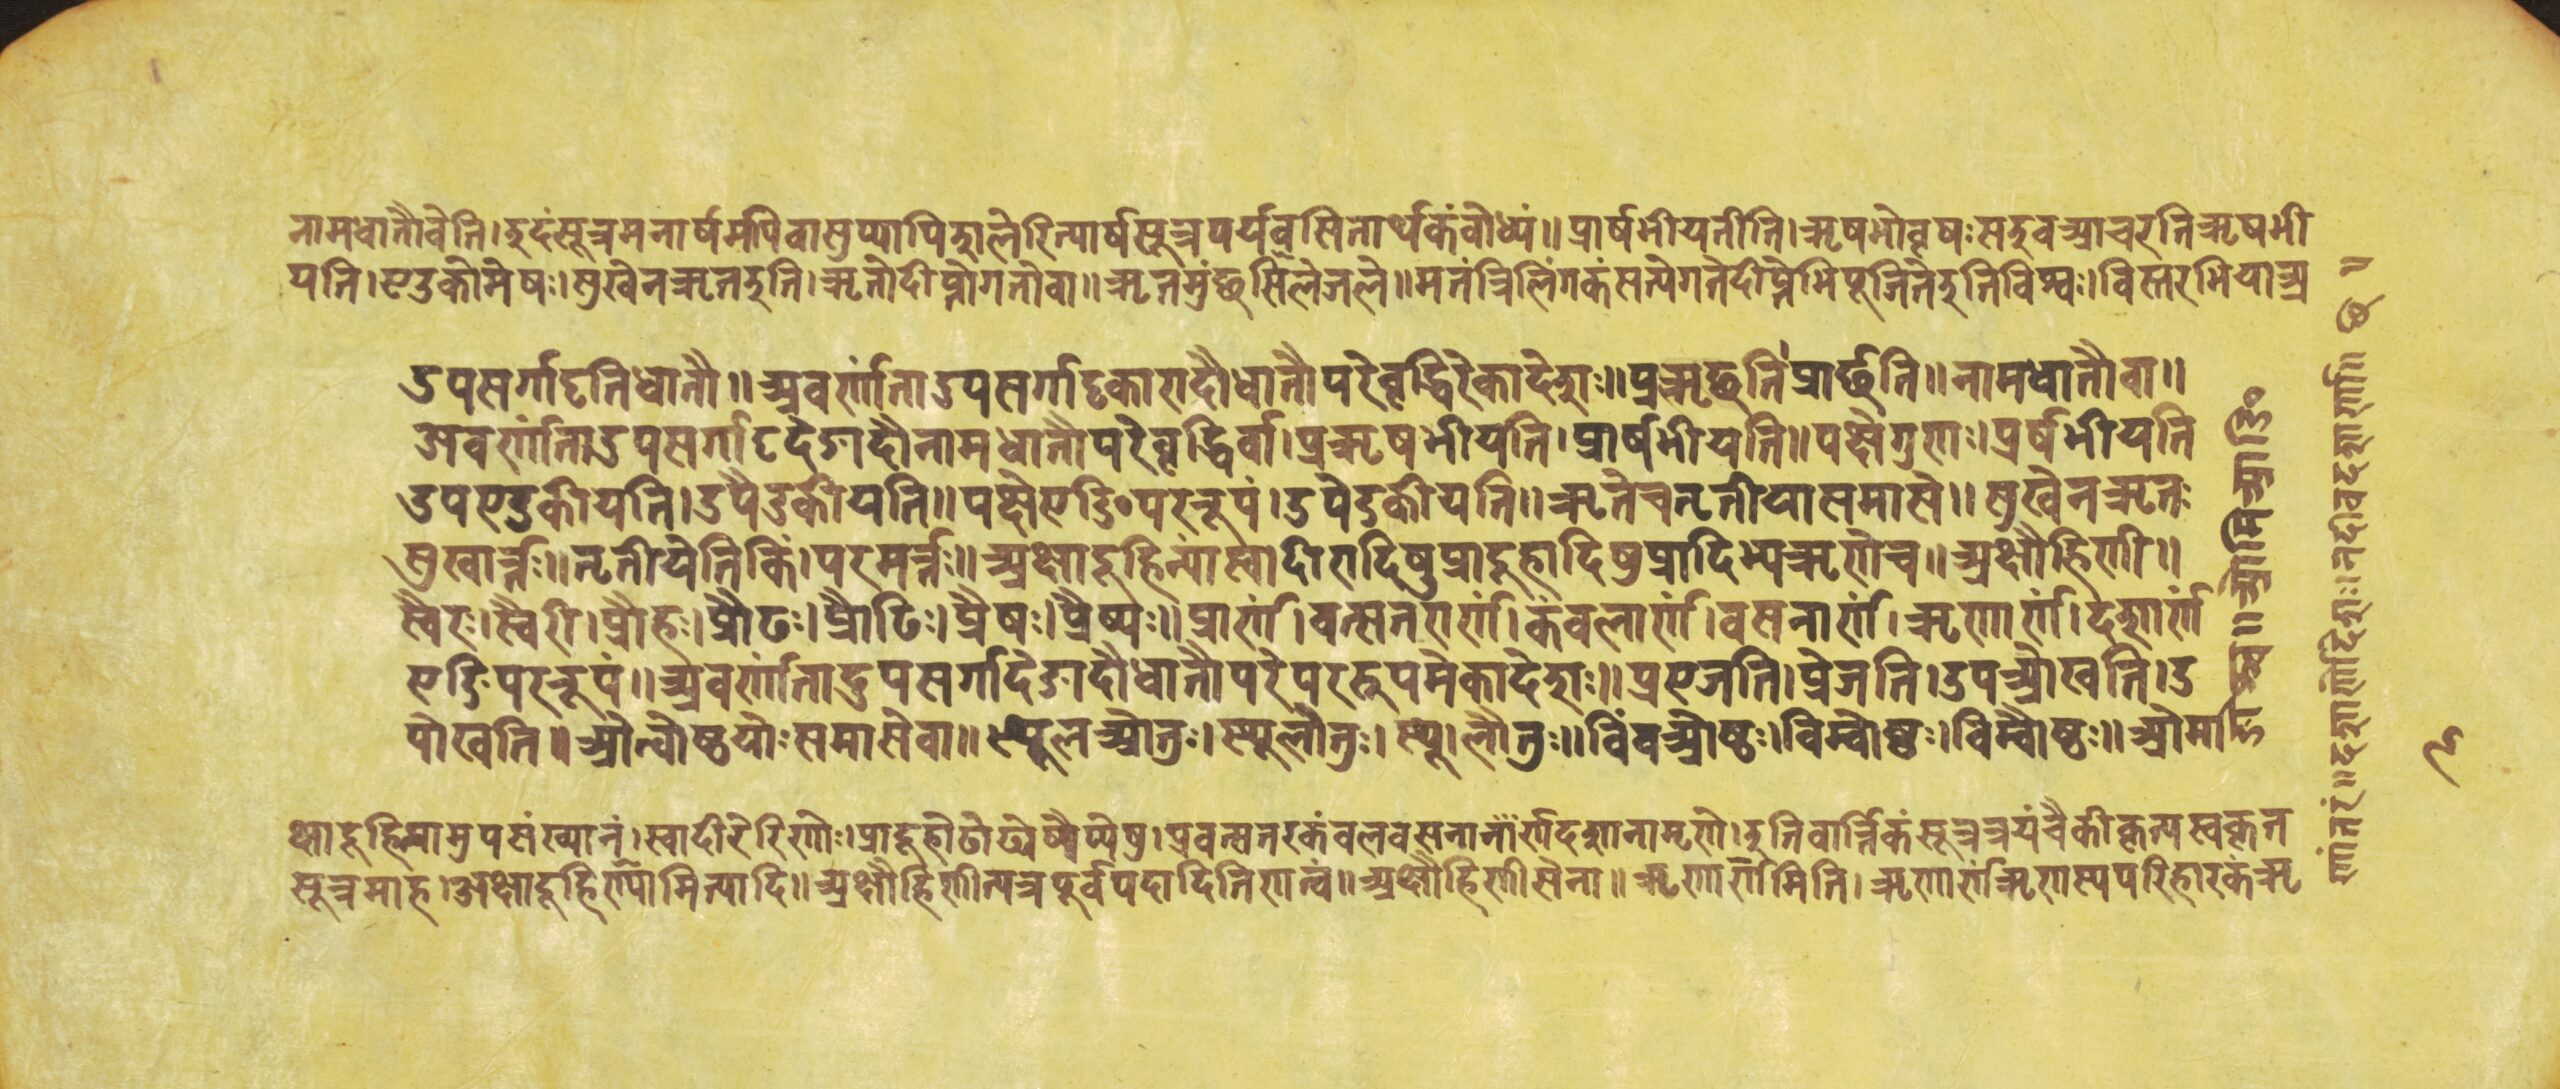 नामधातौवेति।इदंसूत्रमनार्षमपिवासुप्यापिशलेरित्यार्षसूत्रपर्यवसितार्थकंबोध्यं॥प्रार्षभीयतीति।ऋषभोवृषःसइवआचरतिऋषभी
यति।एडकोमेषः।सुखेनऋतइति।ऋतोदीप्तोगतोवा॥ऋतमुंछसिलेजले॥मतंत्रिलिंगकंसत्येगतेदीप्तेभिपूजितेइतिविश्वः।विस्तरभियाऽत्र
उपसर्गादृतिधातौ॥अवर्णांताउपसर्गादृकारादौधातौपरेवृद्धिरेकादेशः॥प्रऋछति।प्रार्छति॥नामधातौवा॥
अवर्णांताउपसर्गादृदेङादौनामधातौपरेवृद्धिर्वा।प्रऋषभीयति।प्रार्षभीयति॥पक्षेगुणः।प्रर्षभीयति
उपएडकीयति।उपैडकीयति॥पक्षेएङिपररूपं।उपेडकीयति॥ऋतेचतृतीयासमासे॥सुखेनऋतः
सुखार्त्तः॥तृतीयेतिकिं।परमर्त्तः॥अक्षादूहिन्यांस्वादीरादिषुप्रादूहादिषुप्रादिभ्यऋणेच॥अक्षौहिणी॥
स्वैरः।स्वैरी।प्रौहः।प्रौढः।प्रौढिः।प्रैषः।प्रैष्यः॥प्रार्णं।वत्सतरार्णं।कंवलार्णं।वसनार्णं।ऋणार्णं।दशार्णं
एङिपररूपं॥अवर्णांतादुपसर्गादेङादौधातौपरेपररूपमेकादेशः॥प्रएजति।प्रेजति।उपओखति।उ
पोखति॥ओत्वोष्ठयोःसमासेवा॥स्थूलओतुः।स्थूलोतुः।स्थूलौतुः॥विंवओष्ठः।विम्वोष्ठः।विम्वौष्ठः॥ओमा
क्षादूहिन्यामुपसंख्यानं।स्वादीरेरिणोः।प्रादूहोढोढ्येषैष्येषु।प्रवत्सतरकंवलवसनार्णदशानामृणे।इतिवार्त्तिकंसूत्रत्रयंचैकीकृत्यस्वकृत
सूत्रमाह।अक्षादूहिण्यामित्यादि॥अक्षौहिणीत्यत्रपूर्वपदादितिणत्वं॥अक्षौहिणीसेना॥ऋणार्णमिति।ऋणार्णंऋणस्यपरिहारकंऋ